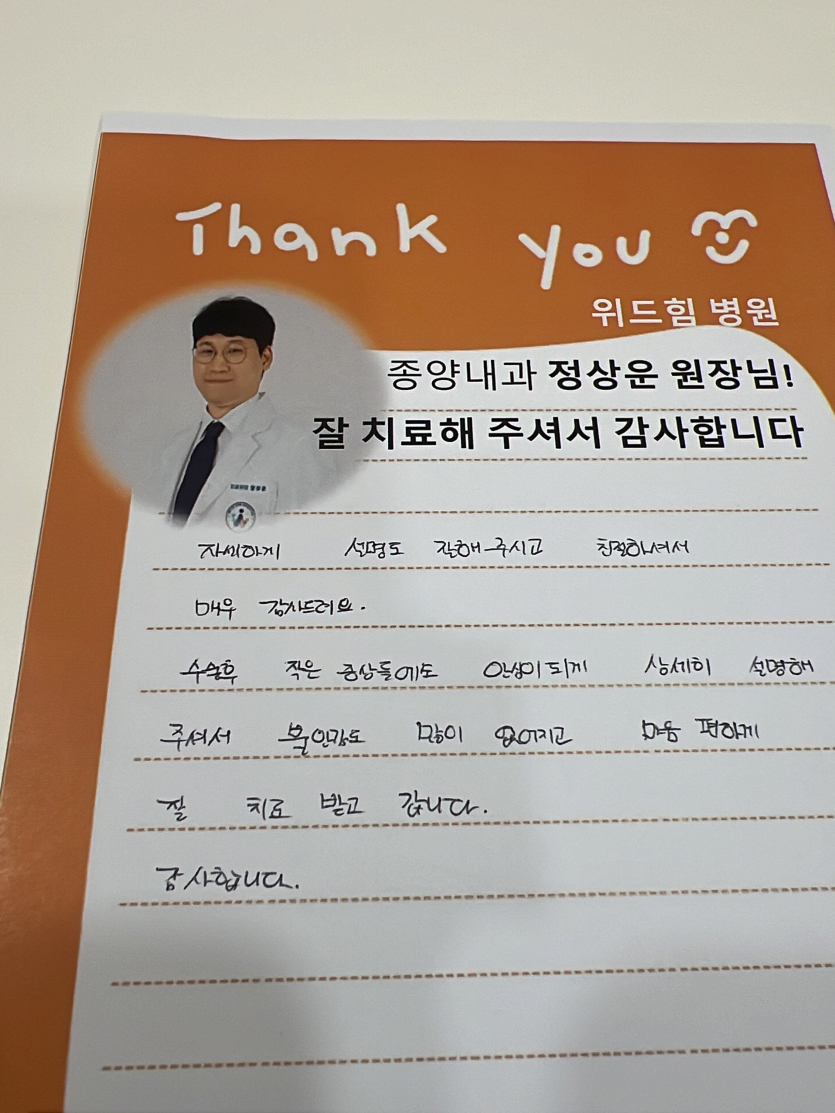 Thank you
위드힘 병원
종양내과 정상운 원장님!
잘 치료해 주셔서 감사합니다
자세하게 설명도 잘해주시고 친절하셔서
매우 감사드려요.
수술후 작은 증상들에도 안심이 되게 상세히 설명해
주셔서 불안감도 많이 없어지고 마음 편하게
잘 치료 받고 갑니다.
감사합니다.